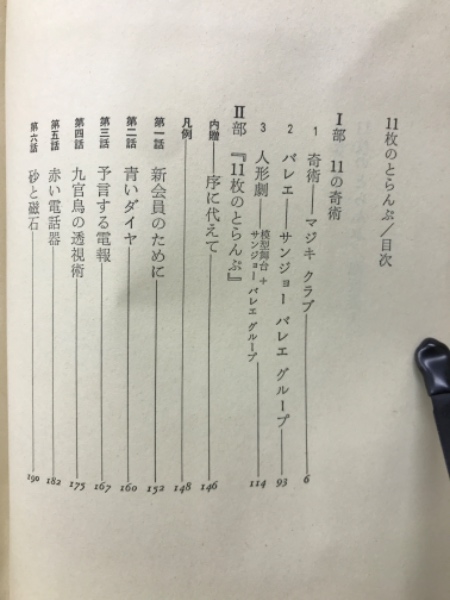 11枚のとらんぷ/目次
I部 11の奇術
1 奇術——マジキ クラブ 6
2 バレエ——サンジョー バレエ グループ 93
3 人形劇——模型舞台+サンジョー バレエ グループ 114
II部 『11枚のとらんぷ』
内贈——序に代えて 146
凡例 148
第一話 新会員のために 152
第二話 青いダイヤ 160
第三話 予言する電報 167
第四話 九官鳥の透視術 175
第五話 赤い電話器 182
第六話 砂と磁石 190